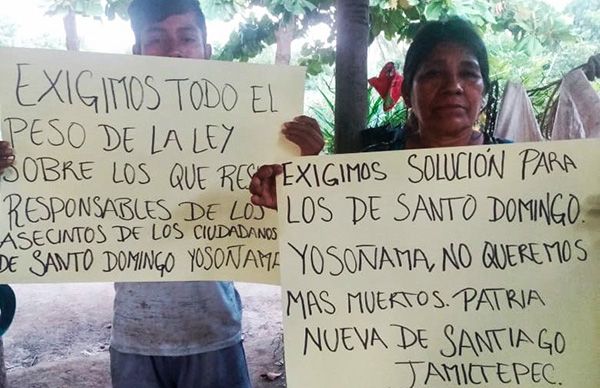 EXIGIMOS TODO EL
PESO DE LA LEY
SOBRE LOS QUE RES
RESPONSABLES DE LOS
ASECINTOS DE LOS CIUDADANOS
DE SANTO DOMINGO YOSOÑAMA
EXIGIMOS SOLUCIÓN PARA
LOS DE SANTO DOMINGO.
YOSOÑAMA, NO QUEREMOS
MAS MUERTOS. PATRIA
NUEVA DE SANTIAGO
JAMILTEPEC.